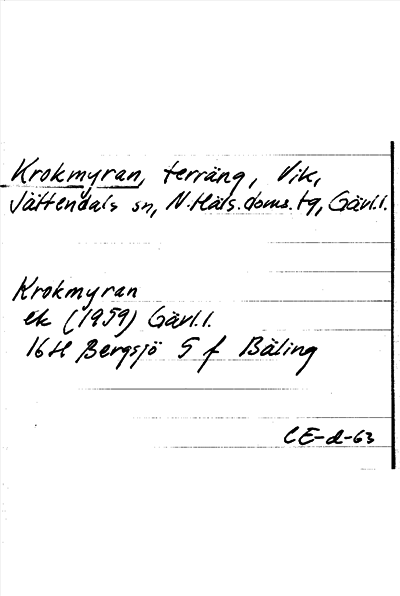 Krokmyran, terräng, Vik,
Jättendals sn, N.Häls.doms.tg, Gävl.l.
Krokmyran
ek (1959) Gävl.l.
16H Bergsjö 5 f Bäling
CE-d-63